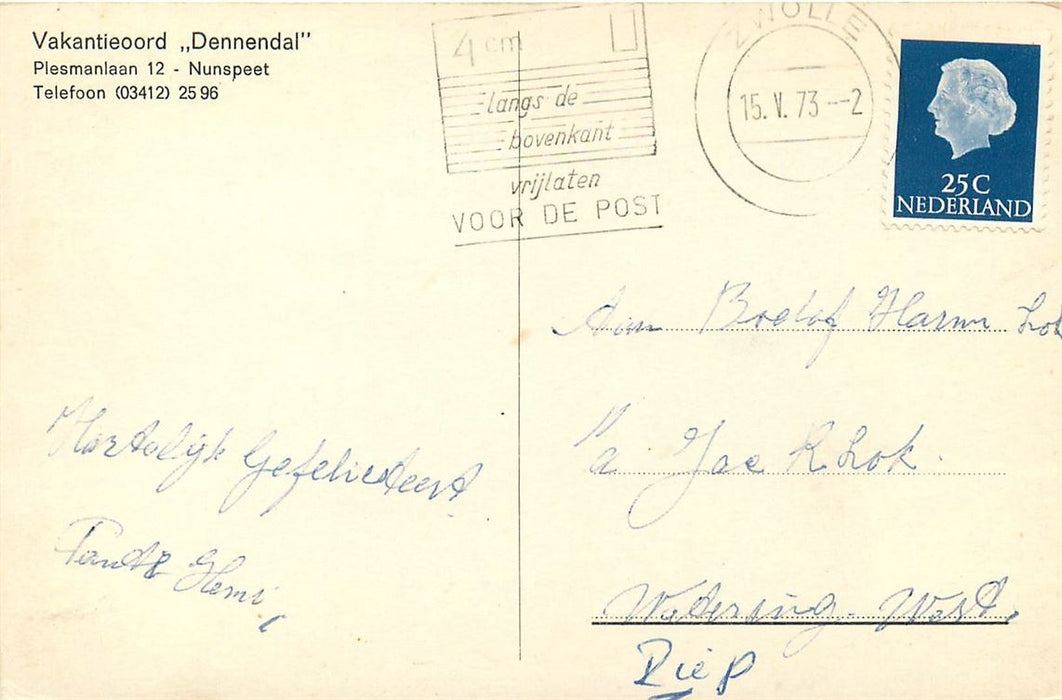 Vakantieoord „Dennendal"
Plesmanlaan 12 - Nunspeet
Telefoon (03412) 25 96
4 cm
langs de
bovenkant
vrijlaten
VOOR DE POST
ZWOLLE
15.V.73--2
25C
NEDERLAND
Aan Harm Lok
Jac K Lok.
Wetering-West,
Hartelijk Gefeliciteerd
Tante